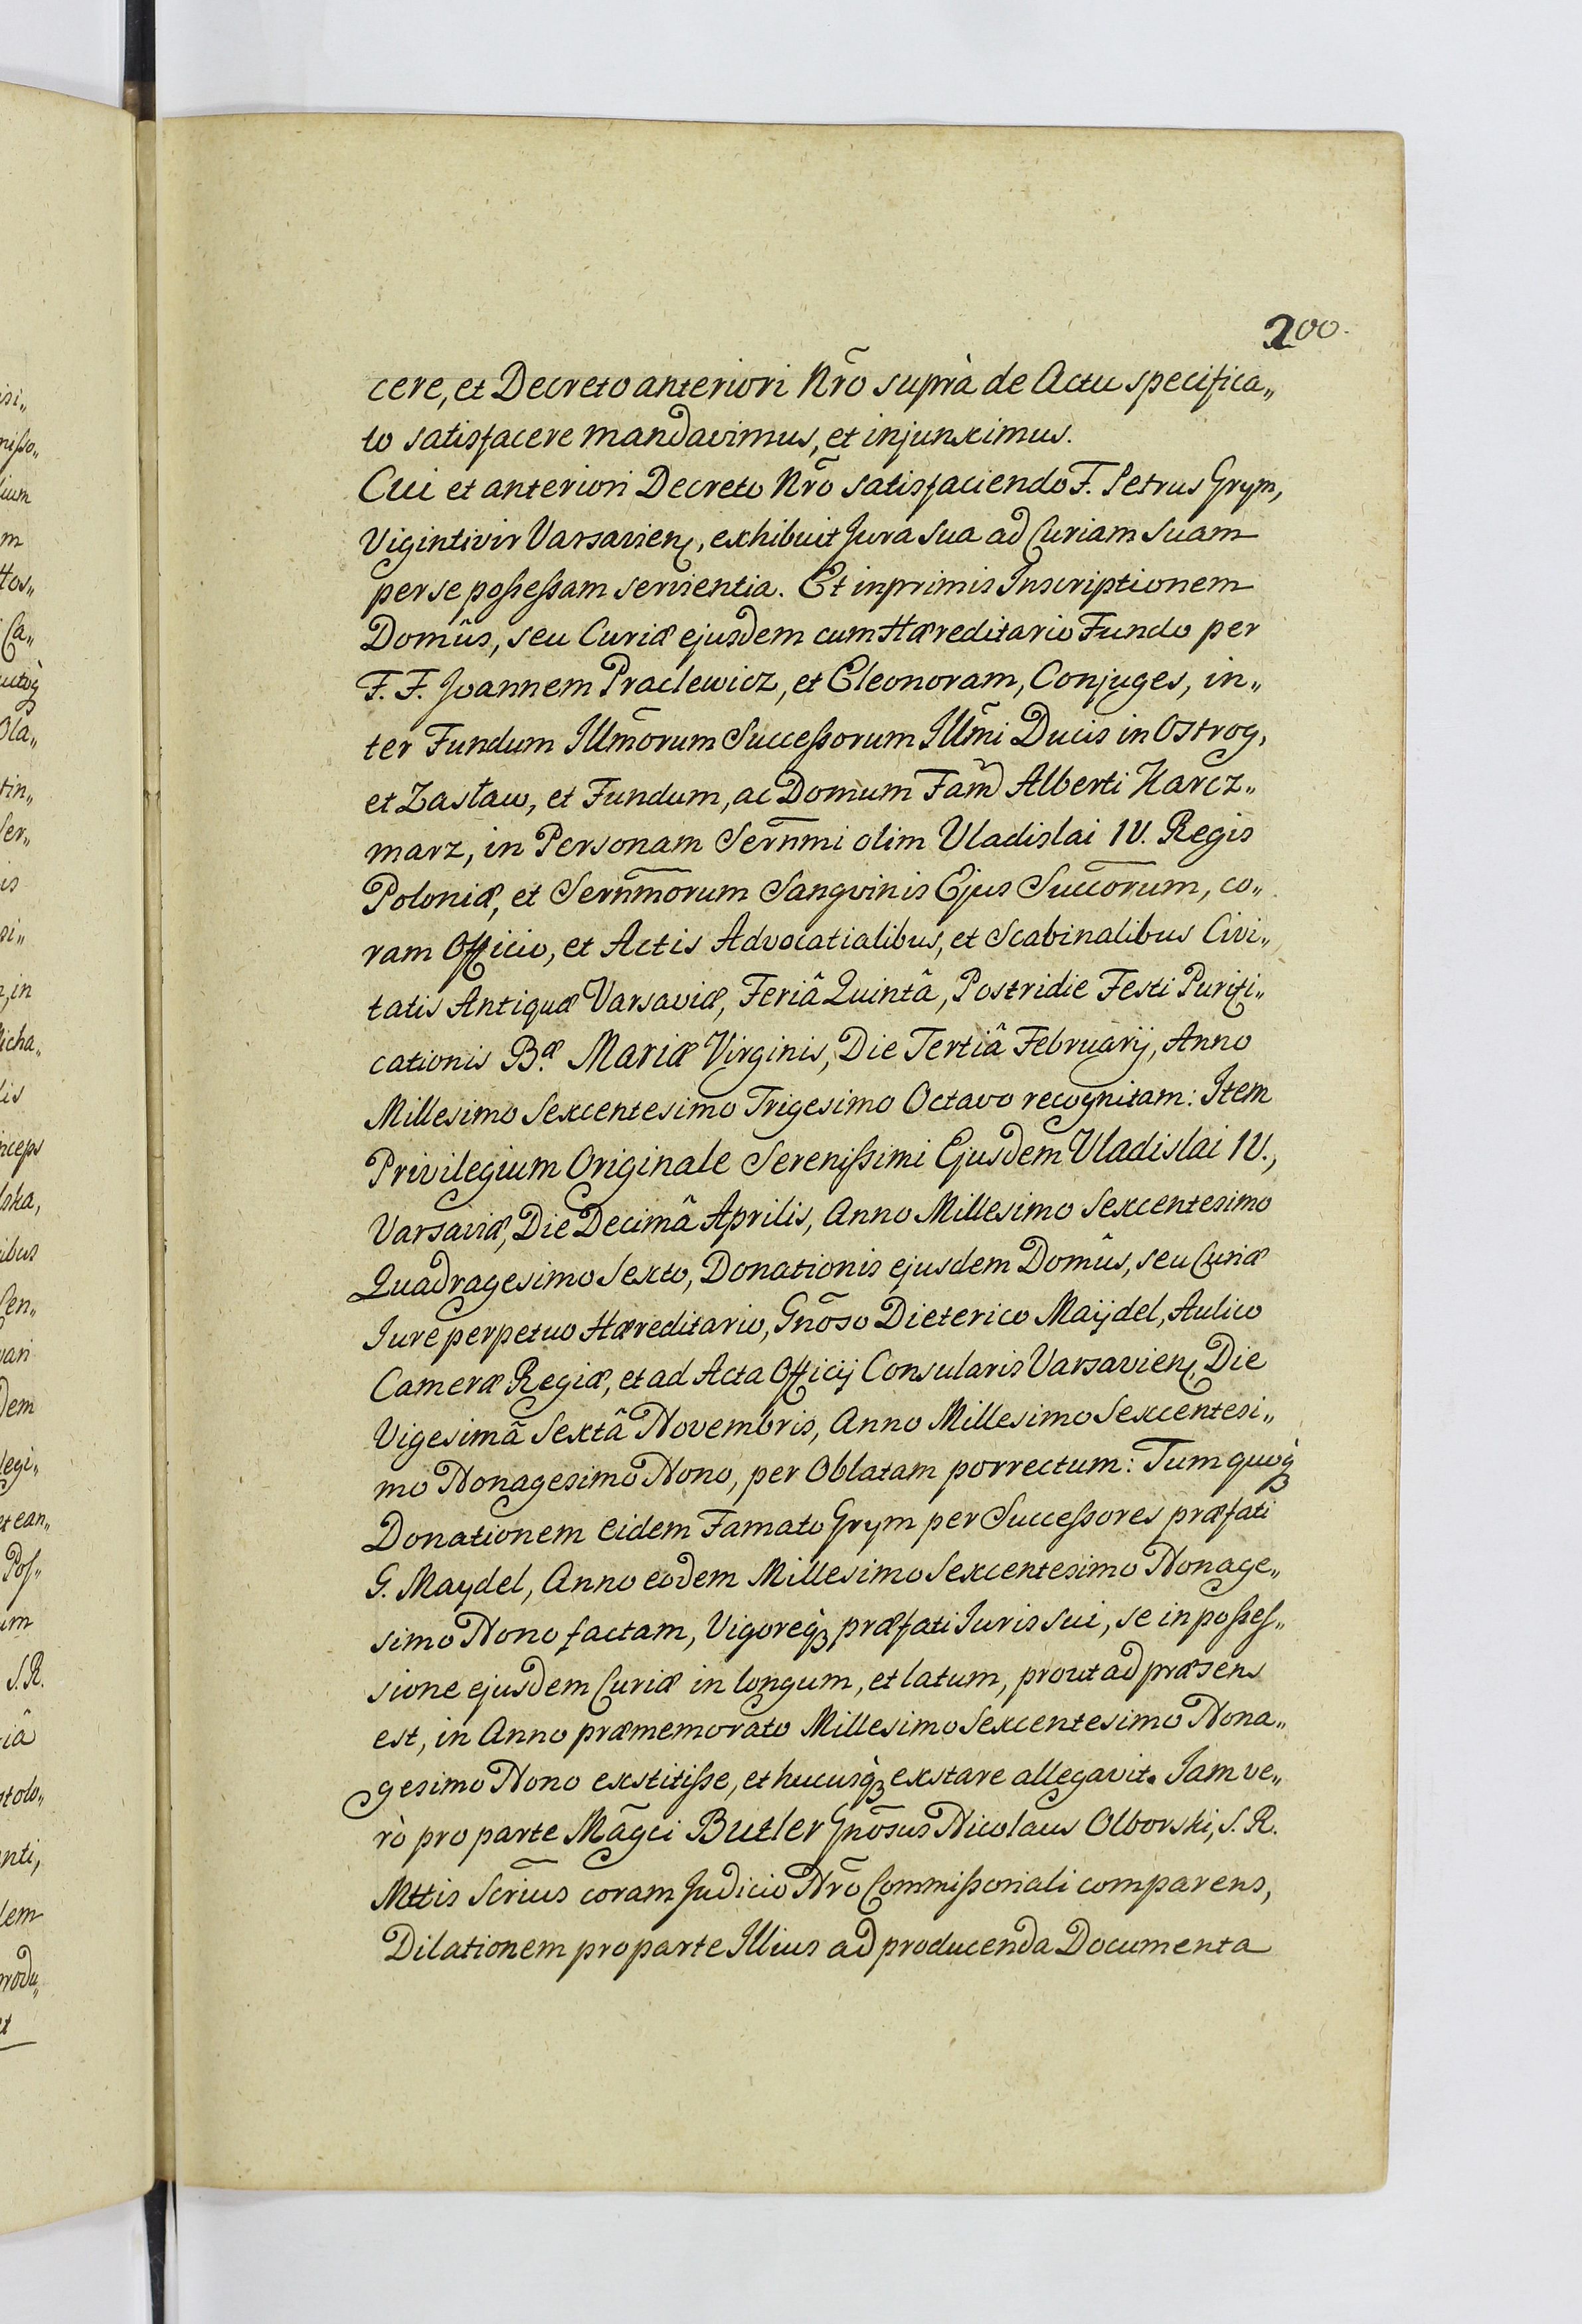 200.
cere, et Decreto anteriori Nr̃o suprà de Actu specifica„
to satisfacere mandavimus, et injunximus.
Cui et anteriori Decreto Nr̃o satisfaciendo F. Petrus Grym,
Vigintivir Varsavien, exhibuit Jura sua ad Curiam suam
per se possessam servientia. Et inprimis Inscriptionem
Domûs, seu Curiæ ejusdem cum Hæreditario Fundo per
F. F. Joannem Praclewicz, et Eleonoram, Conjuges, in„
ter Fundum Illm̃orum Successorum Illm̃i Ducis in Ostrog,
et Zasław, et Fundum, ac Domum Fam̃ Alberti Karcz„
marz, in Personam Sern̄mi olim Vladislai IV. Regis
Poloniæ, et Sern̄morum Sangvinis Ejus Succ̄orum, co„
ram Officio, et Actis Advocatialibus, et Scabinalibus Civi„
tatis Antiquæ Varsaviæ, Feriâ Quintâ, Postridie Festi Purifi„
cationis B.æ Mariæ Virginis, Die Tertiâ Februarij, Anno
Millesimo Sexcentesimo Trigesimo Octavo recognitam: Item
Privilegium Originale Serenissimi Ejusdem Vladislai IV.,
Varsaviæ, Die Decimâ Aprilis, Anno Millesimo Sexcentesimo
Quadragesimo Sexto, Donationis ejusdem Domûs, seu Curiæ
Jure perpetuo Hæreditario, Gnõso Dieterico Maÿdel, Aulico
Cameræ Regiæ, et ad Acta Officij Consularis Varsavien, Die
Vigesimâ Sextâ Novembris, Anno Millesimo Sexcentesi„
mo Nonagesimo Nono, per Oblatam porrectum: Tum quoq̀ꝫ
Donationem eidem Famato Grym per Successores præfati
G. Maydel, Anno eodem Millesimo Sexcentesimo Nonage„
simo Nono factam, Vigoreq̀ꝫ præfati Juris sui, se in posses„
sione ejusdem Curiæ in longum, et latum, prout ad præsens
est, in Anno præmemorato Millesimo Sexcentesimo Nona„
gesimo Nono exstitisse, et hucusq̀ꝫ exstare allegavit. Jam ve„
rò pro parte Mãgci Butler Gnõsus Nicolaus Olborski, S. R.
Mttis Scrĩus coram Judicio Nr̃o Commissoriali comparens,
Dilationem pro parte Illius ad producenda Documenta